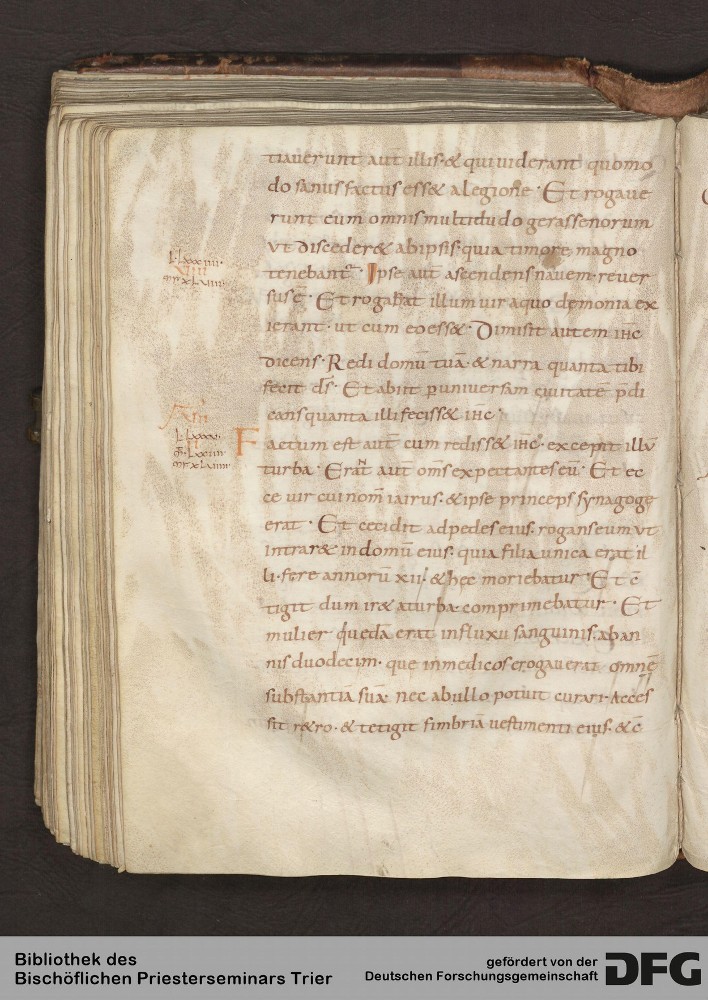 tiaverunt aut̄ illis· & qui viderant quomo
do sanus factus ess& a legione· Et rogave
runt eum omnis multitudo gerassenorum
vt disceder& ab ipsis· quia timore magno
tenebant᷒· Ipse aut̄ ascendens navem· rever
sus ē· Et rogabat illum vir a quo dęmonia ex
ierant· ut cum eo ess&· Dimisit autem ih̄c
dicens· Redi domū tuā· & narra quanta tibi
fecit d̄s· Et abiit ꝑ universam civitatē p̄di
cans quanta illi feciss& ih̄c·
Factum est aut̄ cum rediss& ih̄c· excepit illū
turba· Erant aut̄ om̄s expectantes eū· Et ec
ce vir cui nom̄ iairus· & ipse princeps synagogę
erat· Et cecidit ad pedes eius· rogans eum vt
intrar& in domū eius· quia filia unica erat il
li· fere annorū xii· & hęc moriebatur· Et c̄
tigit dum ir& a turba comprimebatur· Et
mulier quędā erat in fluxu sanguinis· ab an
nis duodecim· que in medicos erogaverat omnē
substantiā suā· nec ab ullo potuit curari· Acces
sit r&ro· & tetigit fimbriā vestimenti eius· & c̄
Bibliothek des
Bischöflichen Priesterseminars Trier
gefördert von der
Deutschen Forschungsgemeinschaft
DFG